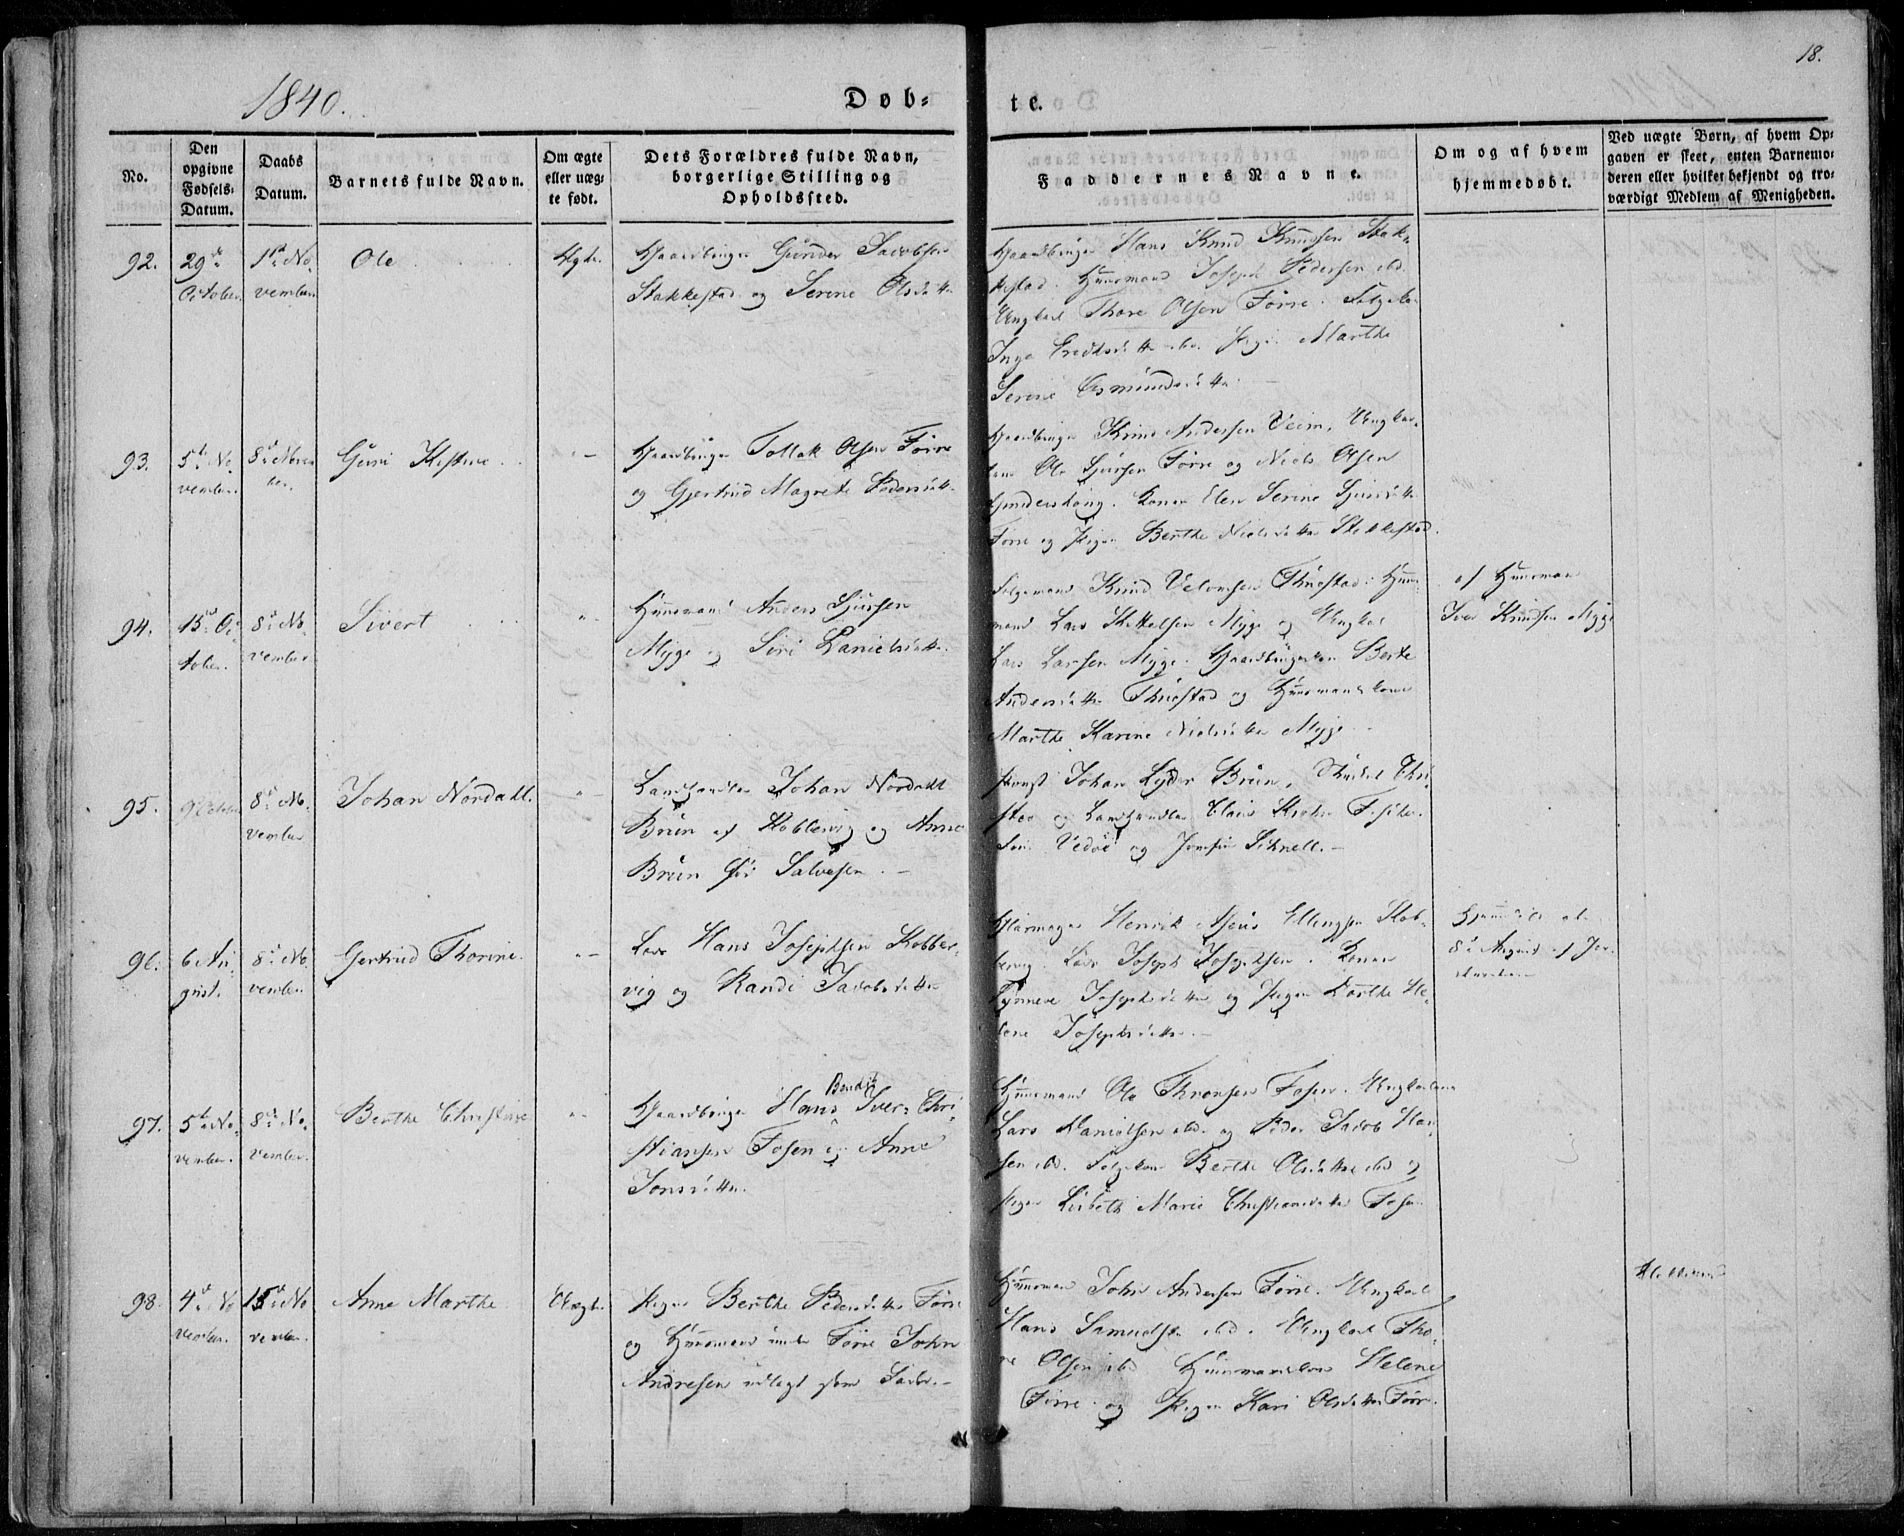 18.
1840.
Døb-
te.
No.
Den
opgivne
Fødsels-
Datum.
Daabs
Datum.
Barnets fulde Navn.
Om ægte
eller uæg-
te født.
Dets Forældres fulde Navn,
borgerlige Stilling og
Opholdssted.
Faddernes Navne.
Om og af hvem
hjemmedøbt.
Ved uægte Børn, af hvem Op-
gaven er skeet, enten Barnemo-
deren eller hvilket bekjendt og tro-
værdigt Medlem af Menigheden.
92.
29de
October
1ste No-
vember
Ole
Ægte
Gaardbruger Gunder Jacobsen
Stakkestad og Serine Olsdatter
Gaardbruger Hans Knud Knudsen Stak-
kestad. Huusmand Joseph Pedersen ibd.
Ungkarl Thore Olsen Førre.
Inge
Pige Marthe
Serine Osmundsdatter
93.
5te No-
vember
8de Novem
ber.
Guri Kistine
"
Gaardbruger Tollak Olsen Førre
og Gjertrud Magrete Pedersdatter
Gaardbruger Knud Andersen Veim, Ungkar-
lene Ole Sjursen Førre og Niels Olsen
Konen Elen Serine Sjursdatter
Førre og Pigen Berthe Nielsdatter Stakkestad.
94.
15de Oc-
tober.
8de No-
vember
Sivert
"
Huusmand Anders Sjursen
Myge og Siri Danielsdatter.
Knud Thuestad. Huus-
mand Lars Myge og Ungkarl
Lars Larsen Myge. Gaardbrugerkone Berte
Andersdatter Thuestad og Huusmandskone
Marthe Karine Nielsdatter Myge
af Huusmand
Iver Knudsen Myge
95.
9 October
8de No-
vember
Johan Nordahl.
"
Landhandler Johan Nordahl
Bruun af Kobbervig og Anne
Bruun født Salvesen.
Johan Lyder Bruun,
og Landhandler Claus Krohn
Vedøe og Jomfru Schnell.
96.
6 Au-
gust.
8de No-
vember
Gertrud Thorine.
"
Lods Hans Josephsen Kobber-
vig og Randi Jacobsdatter
Henrik Ellingsen Kob-
bervig. Lods Joseph Josephsen. Konen
Josephsdatter og Pigen Dorthe He-
lene Josephsdatter.
8de August af Jor-
97.
5te No-
vember.
8de No-
vember.
Berthe Christine
"
Bendix
Gaardbruger Hans Iver Chri-
stiansen Fosen og Anne
Jonsdatter.
Huusmand Ole Thronsen Fosen. Ungkarlene
Lars Danielsen ibd. og Peder Jacob Han-
sen ibd. Berthe Olsdatter ibd og
Pigen Lisbeth Marie Christiansdatter Fosen
98.
4de No
vember.
15de No
vember.
Anne Marthe
Uægte
Pigen Berthe Pedersdatter Førre
og Huusmand under Førre John
Andresen udlagt som Fader.
Huusmand John Andersen Førre. Ungkarl
Hans Samuelsen ibd. Ungkarl Tho-
re Olsen ibd Huusmandskone Helene
Førre. og Pigen Kari Olsdatter Førre.